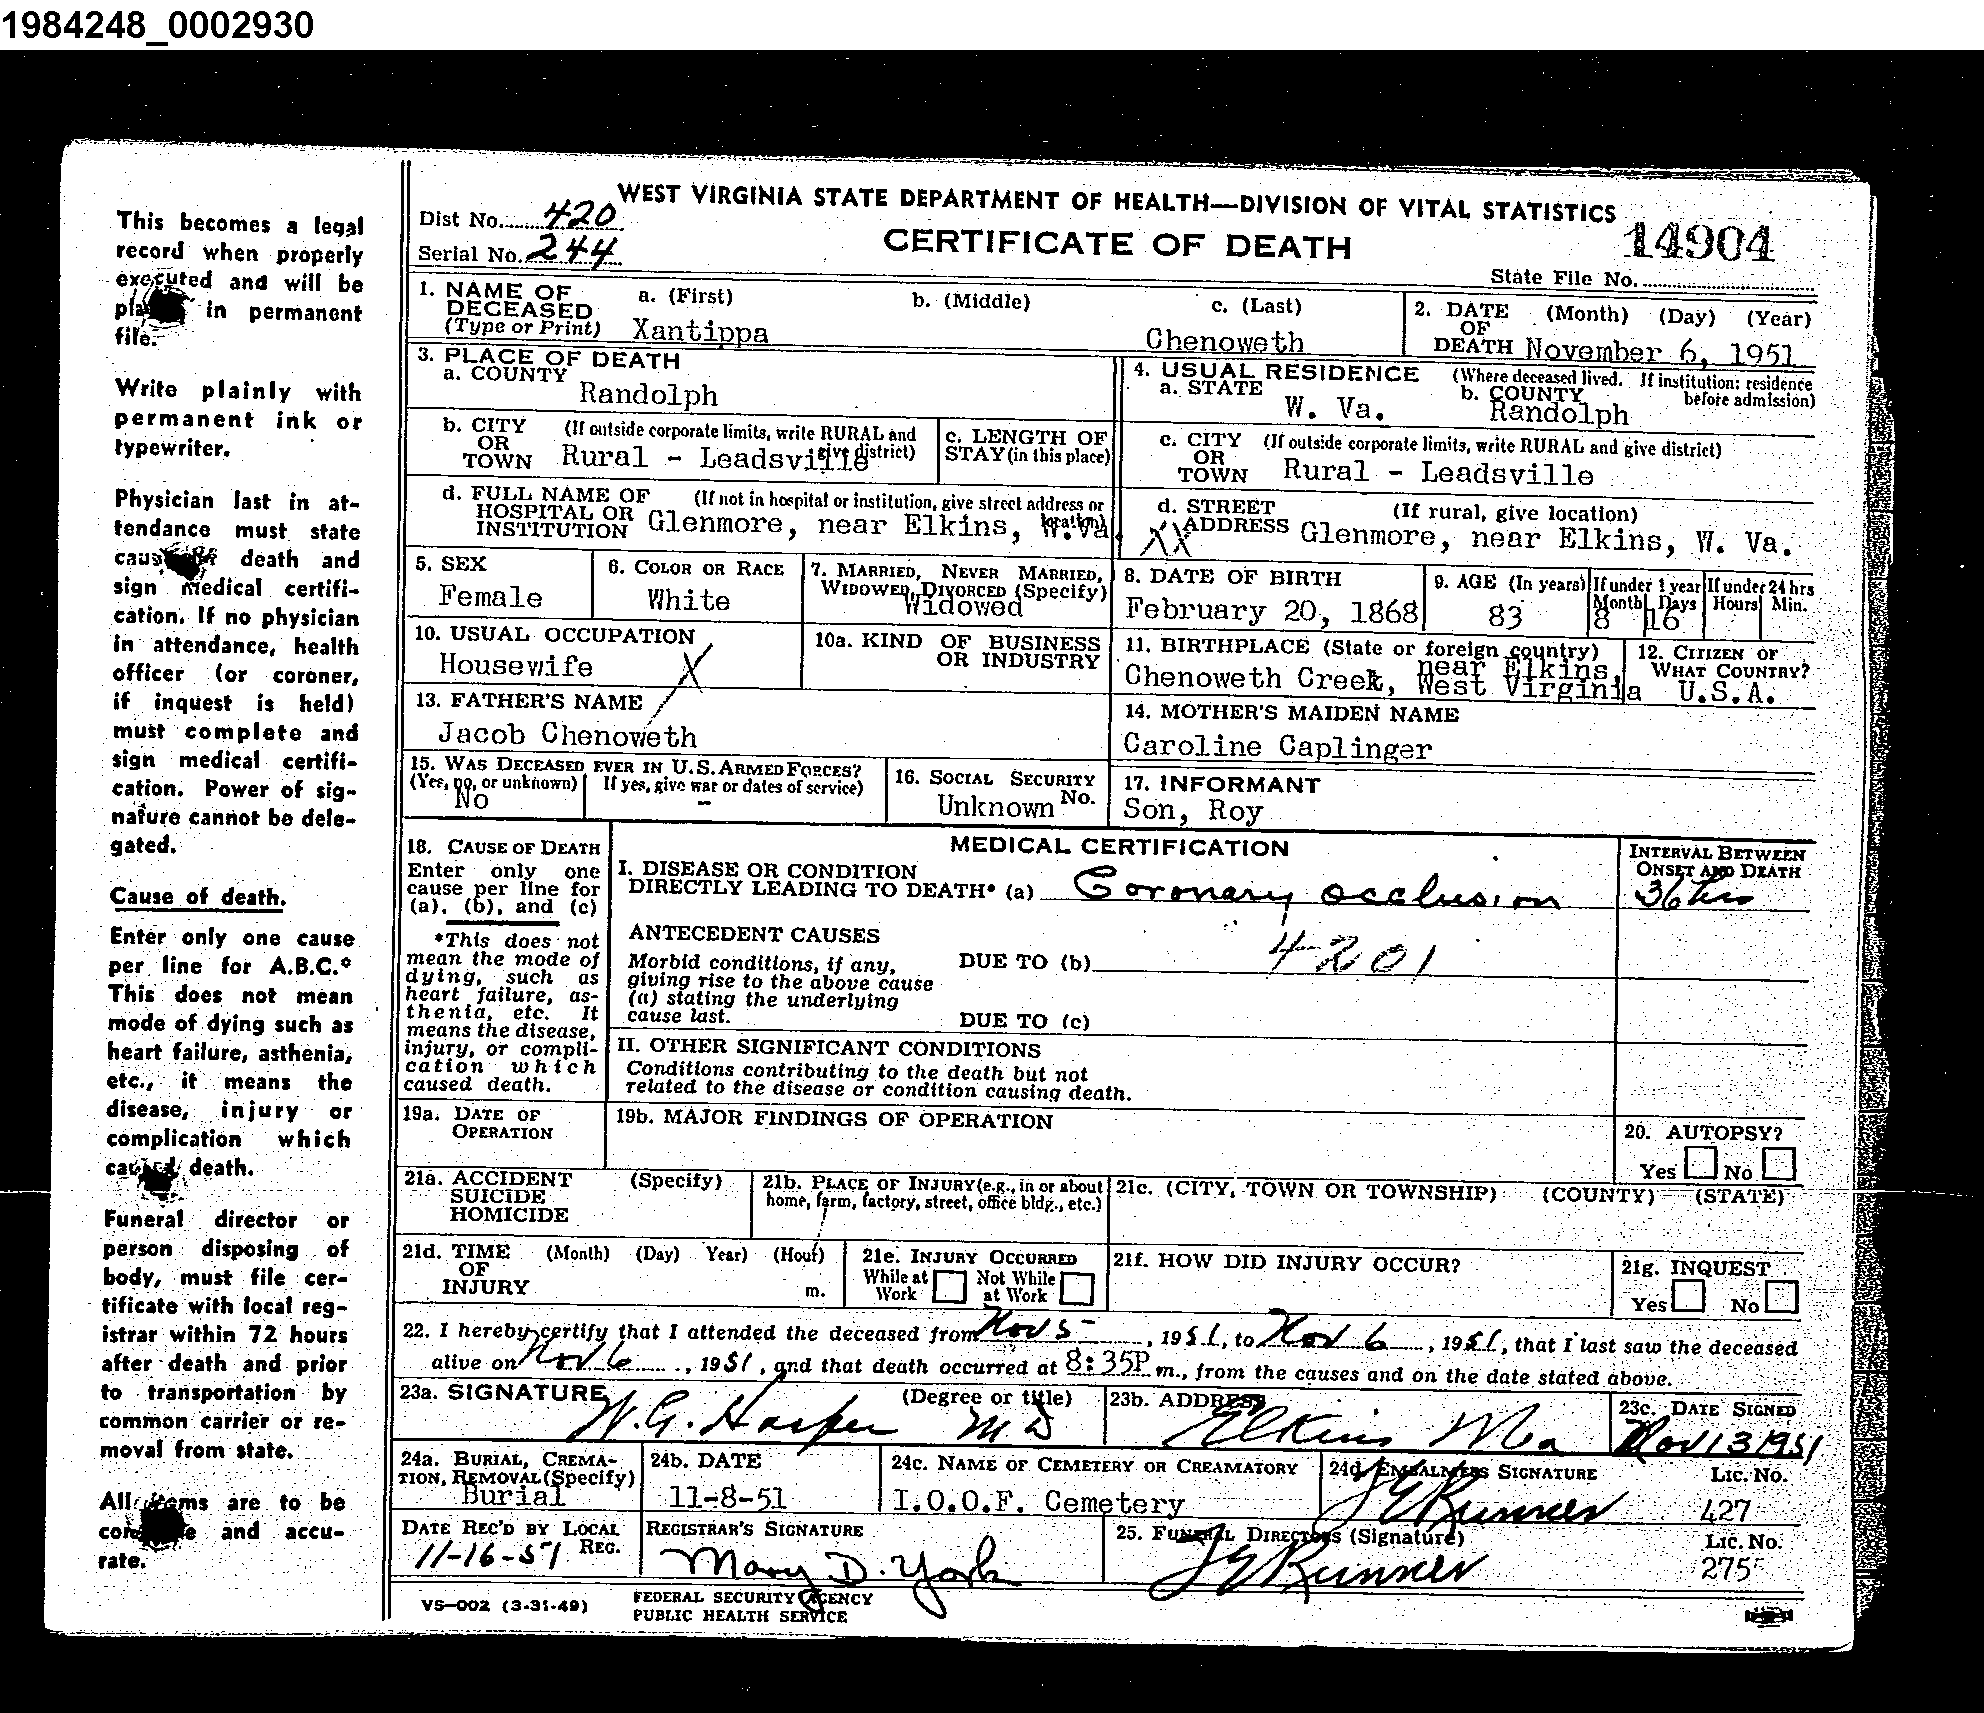 1984248_0002930
This becomes a legal
record when properly
executed and will be
in permanent
file.
Write plainly with
permanent ink or
typewriter.
Physician last in at-
tendance must state
death and
sign medical certifi-
cation. If no physician
in attendance, health
officer (or coroner,
if inquest is held)
must complete and
sign medical certifi-
cation. Power of sig-
nature cannot be dele-
gated.
Cause of death.
Enter only one cause
per line for A.B.C.*
This does not mean
mode of dying such as
heart failure, asthenia,
etc., it means the
disease, injury or
complication which
death.
Funeral director or
person disposing of
body, must file cer-
tificate with local reg-
istrar within 72 hours
after death and prior
to transportation by
common carrier or re-
moval from state.
All items are to be
and accu-
rate.
WEST VIRGINIA STATE DEPARTMENT OF HEALTH—DIVISION OF VITAL STATISTICS
Dist No. 420
Serial No. 244
CERTIFICATE OF DEATH
14904
State File No.
1. NAME OF DECEASED (Type or Print) a. (First) b. (Middle) c. (Last)
Xantippa Chenoweth
2. DATE OF DEATH (Month) (Day) (Year)
November 6, 1951
3. PLACE OF DEATH
a. COUNTY
Randolph
4. USUAL RESIDENCE (Where deceased lived. If institution: residence before admission)
a. STATE W. Va. b. COUNTY Randolph
b. CITY OR TOWN (If outside corporate limits, write RURAL and give district)
Rural - Leadsville
c. LENGTH OF STAY (in this place)
c. CITY OR TOWN (If outside corporate limits, write RURAL and give district)
Rural - Leadsville
d. FULL NAME OF HOSPITAL OR INSTITUTION (If not in hospital or institution, give street address or location)
Glenmore, near Elkins, W.Va.
d. STREET ADDRESS (If rural, give location)
XX Glenmore, near Elkins, W. Va.
5. SEX
Female
6. COLOR OR RACE
White
7. MARRIED, NEVER MARRIED, WIDOWED, DIVORCED (Specify)
Widowed
8. DATE OF BIRTH
February 20, 1868
9. AGE (In years) If under 1 year If under 24 hrs
Month Days Hours Min.
83 8 16
10. USUAL OCCUPATION
Housewife X
10a. KIND OF BUSINESS OR INDUSTRY
11. BIRTHPLACE (State or foreign country)
Chenoweth Creek, near Elkins, West Virginia
12. CITIZEN OF WHAT COUNTRY?
U.S.A.
13. FATHER'S NAME
Jacob Chenoweth
14. MOTHER'S MAIDEN NAME
Caroline Caplinger
15. WAS DECEASED EVER IN U.S. ARMED FORCES?
(Yes, no, or unknown) If yes, give war or dates of service)
No -
16. SOCIAL SECURITY No.
Unknown
17. INFORMANT
Son, Roy
18. CAUSE OF DEATH
Enter only one
cause per line for
(a), (b), and (c)
*This does not
mean the mode of
dying, such as
heart failure, as-
thenia, etc. It
means the disease,
injury, or compli-
cation which
caused death.
MEDICAL CERTIFICATION
INTERVAL BETWEEN ONSET AND DEATH
I. DISEASE OR CONDITION
DIRECTLY LEADING TO DEATH* (a) Coronary occlusion 36 hrs
ANTECEDENT CAUSES
Morbid conditions, if any,
giving rise to the above cause
(a) stating the underlying
cause last.
DUE TO (b) 4201
DUE TO (c)
II. OTHER SIGNIFICANT CONDITIONS
Conditions contributing to the death but not
related to the disease or condition causing death.
19a. DATE OF OPERATION
19b. MAJOR FINDINGS OF OPERATION
20. AUTOPSY?
Yes No
21a. ACCIDENT SUICIDE HOMICIDE (Specify)
21b. PLACE OF INJURY (e.g., in or about home, farm, factory, street, office bldg., etc.)
21c. (CITY, TOWN OR TOWNSHIP) (COUNTY) (STATE)
21d. TIME OF INJURY (Month) (Day) Year) (Hour) m.
21e. INJURY OCCURRED
While at Work Not While at Work
21f. HOW DID INJURY OCCUR?
21g. INQUEST
Yes No
22. I hereby certify that I attended the deceased from Nov 5, 1951, to Nov 6, 1951, that I last saw the deceased
alive on Nov 6, 1951, and that death occurred at 8:35P m., from the causes and on the date stated above.
23a. SIGNATURE (Degree or title)
W. G. Harper MD
23b. ADDRESS
Elkins W Va
23c. DATE SIGNED
Nov 13 1951
24a. BURIAL, CREMA-TION, REMOVAL (Specify)
Burial
24b. DATE
11-8-51
24c. NAME OF CEMETERY OR CREAMATORY
I.O.O.F. Cemetery
24d. EMBALMERS SIGNATURE Lic. No.
J E Runner 427
DATE REC'D BY LOCAL REG.
11-16-51
REGISTRAR'S SIGNATURE
Mary D. York
25. FUNERAL DIRECTORS (Signature) Lic. No.
J E Runner 275
VS-002 (3-31-49)
FEDERAL SECURITY AGENCY
PUBLIC HEALTH SERVICE